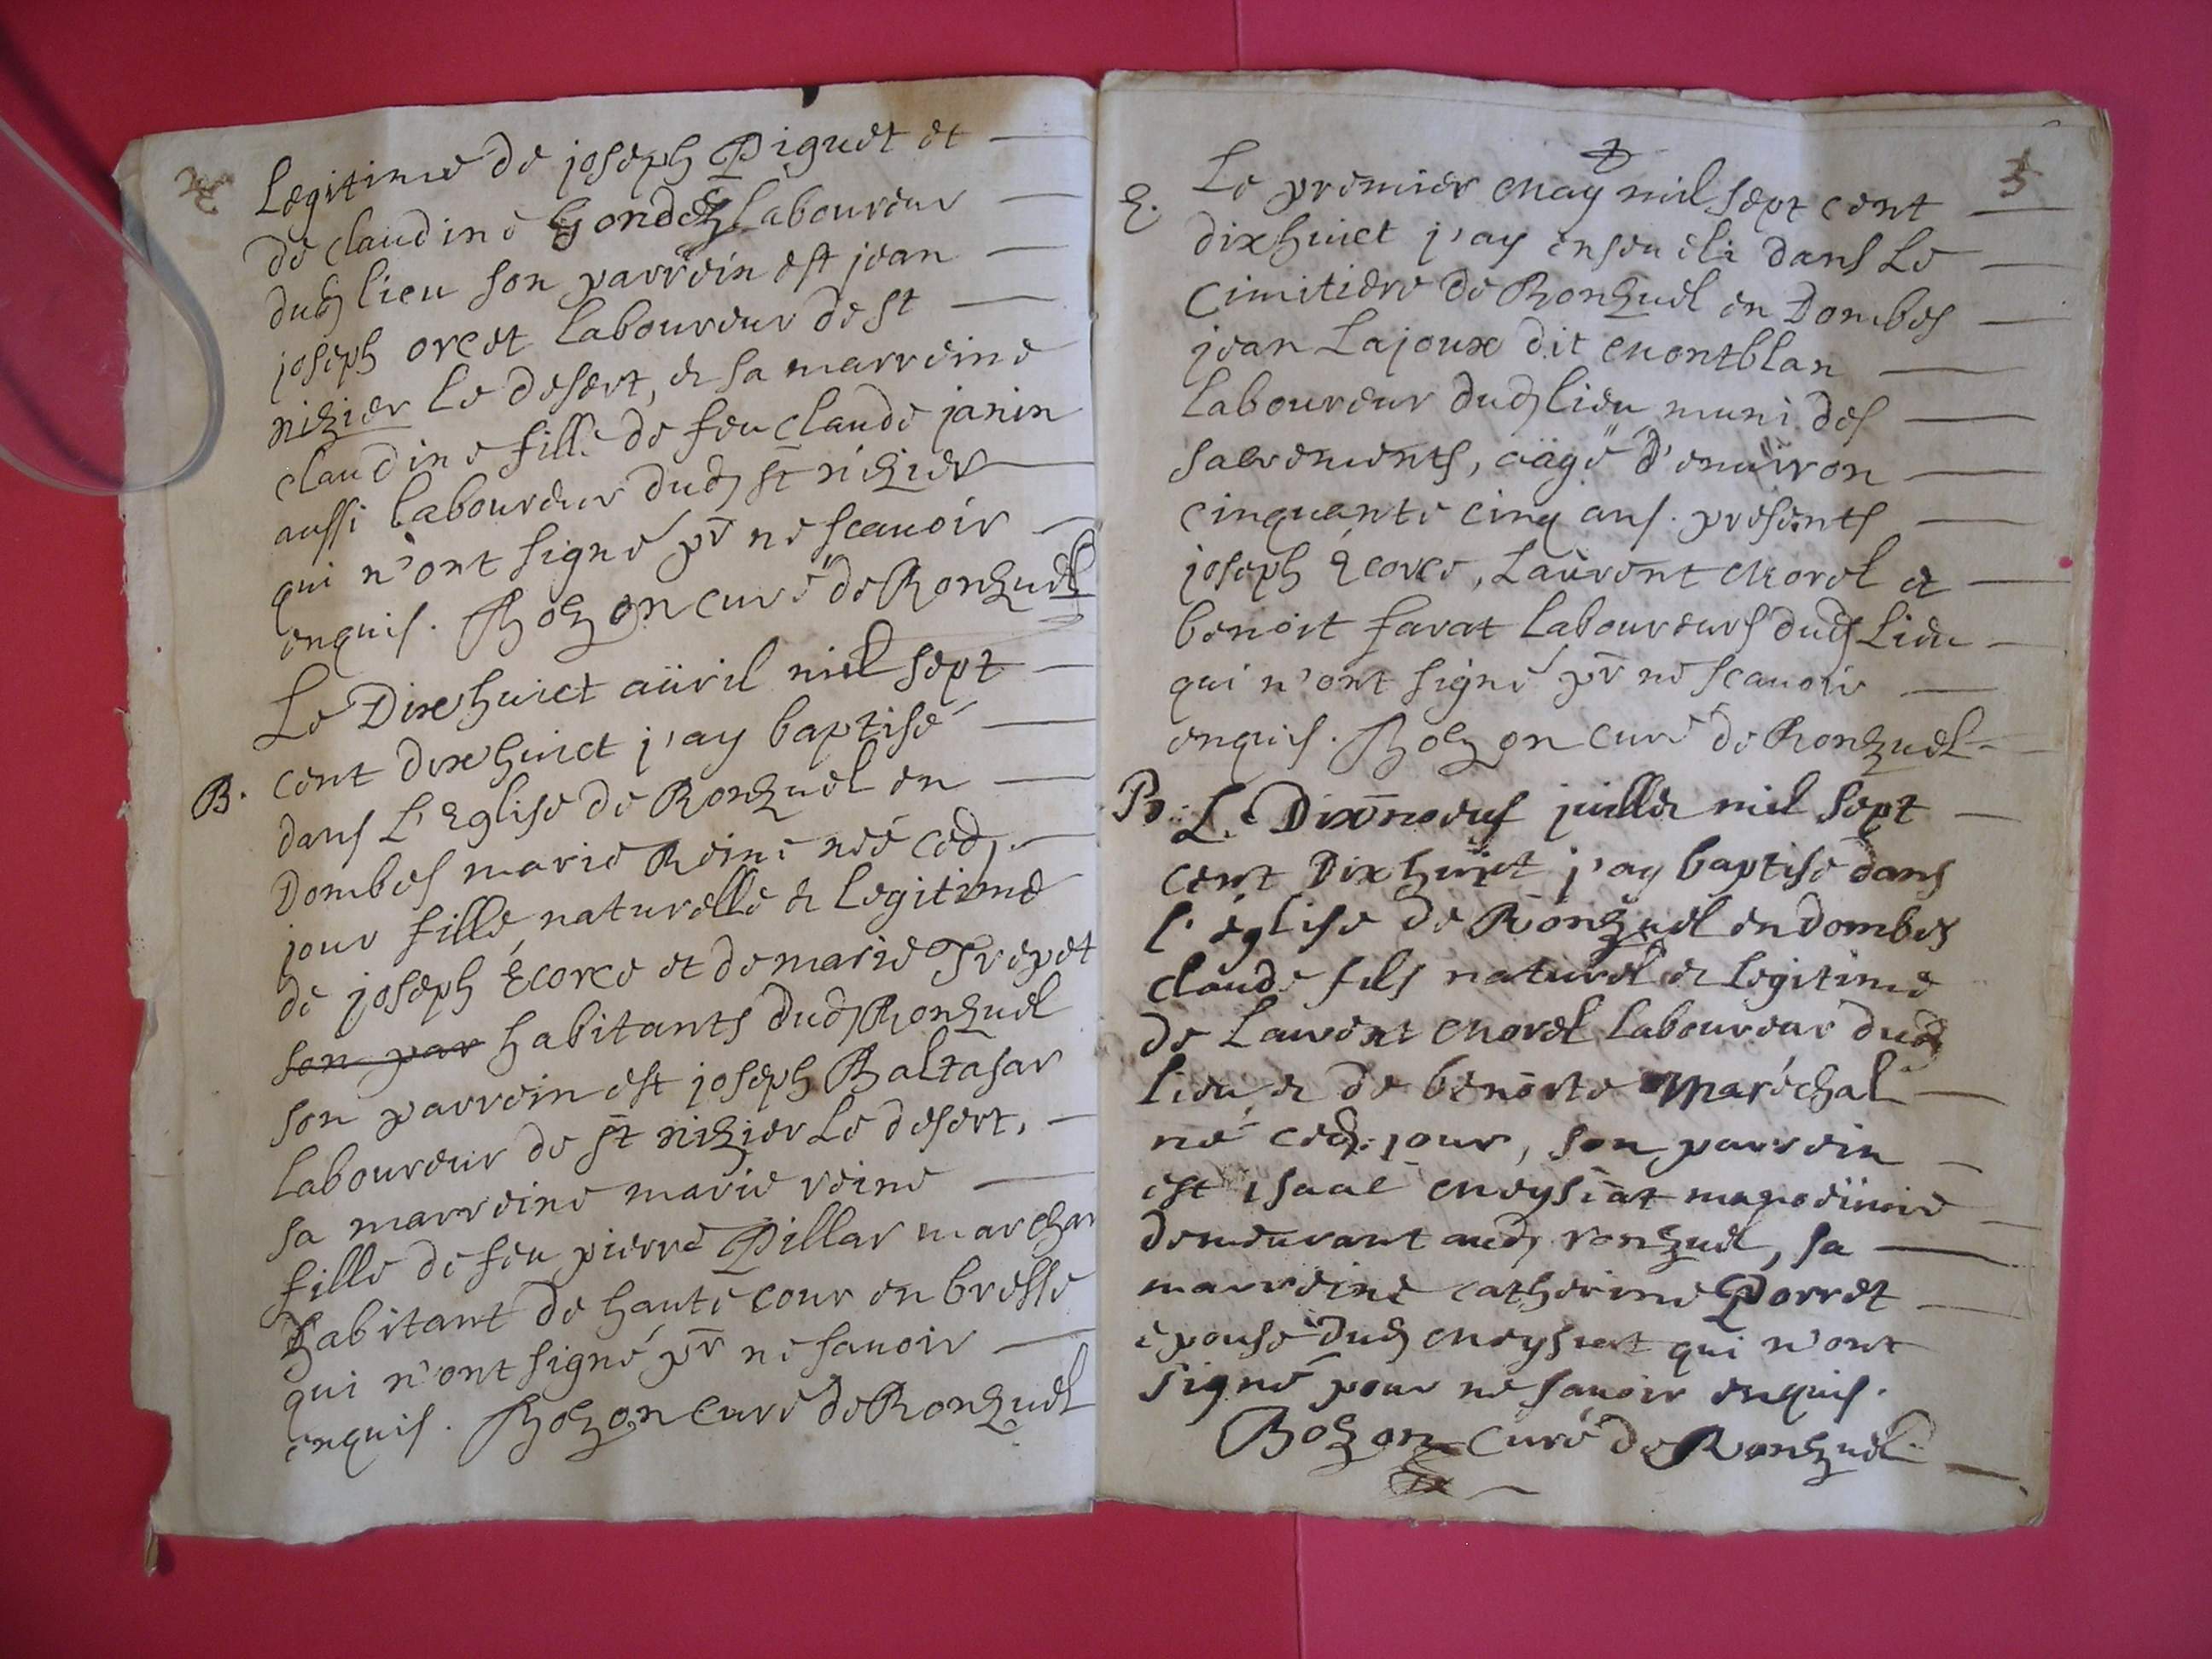 Legitime de joseph Piguet et
de claudine Gondez laboureur
dud lieu son parrein est jean
joseph orcet laboureur de st
nizier le desert, & sa marreine
claudine fille de feu claude janin
aussi laboureur dud st nizier
qui n'ont signé pr ne scavoir
enquis. Bozon curé de Ronzuel
Le Dixhuict auril mil sept
B. cent dixhuict j'ay baptisé
dans L'Eglise de Ronzuel en
Dombes marie Reine née ced.
jour fille naturelle & legitime
de joseph Écorce et de marie Trepet
son par habitants dud Ronzuel
son parrein est joseph Baltasar
laboureur de st nizier le desert,
sa marreine marie reine
fille de feu pierre Pillar marchan
habitant de haute cour en bresse
qui n'ont signé pr ne sauoir
enquis. Bozon curé de Ronzuel
3
E. Le premier May mil sept cent
dixhuict j'ay enseueli dans le
Cimitiere de Ronzuel en Dombes
jean Lajoux dit Montblan
laboureur dud lieu muni des
sacrements, aâgé d'enuiron
cinquante cinq ans. presents
joseph Écorce, Laurent Morel et
benoit farat laboureurs dud Lieu
qui n'ont signé pr ne scauoir
enquis. Bozon Curé de Ronzuel
B. Le Dixneuf juillet mil sept
cent Dixhuict j'ay baptisé dans
l'église de Ronzuel en dombes
claude fils naturel & legitime
de Laurent Morel laboureur dud
lieu & de benoite Maréchal
né ced. jour, son parrein
est isaac Meysiat
demeurant aud ronzuel, sa
marreine catherine Porret
épouse dud Meysiat qui n'ont
signé pour ne sauoir enquis.
Bozon Curé de Ronzuel